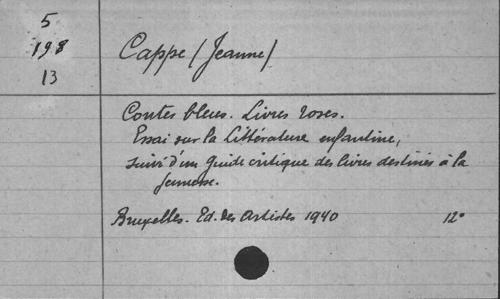 5
198
13
Cappe (Jeanne)
Contes bleus. Livres roses.
Essai sur la Littérature enfantine,
suivi d'un guide critique des livres destinés à la
jeunesse.
Bruxelles. Ed. des Artistes 1940 12°